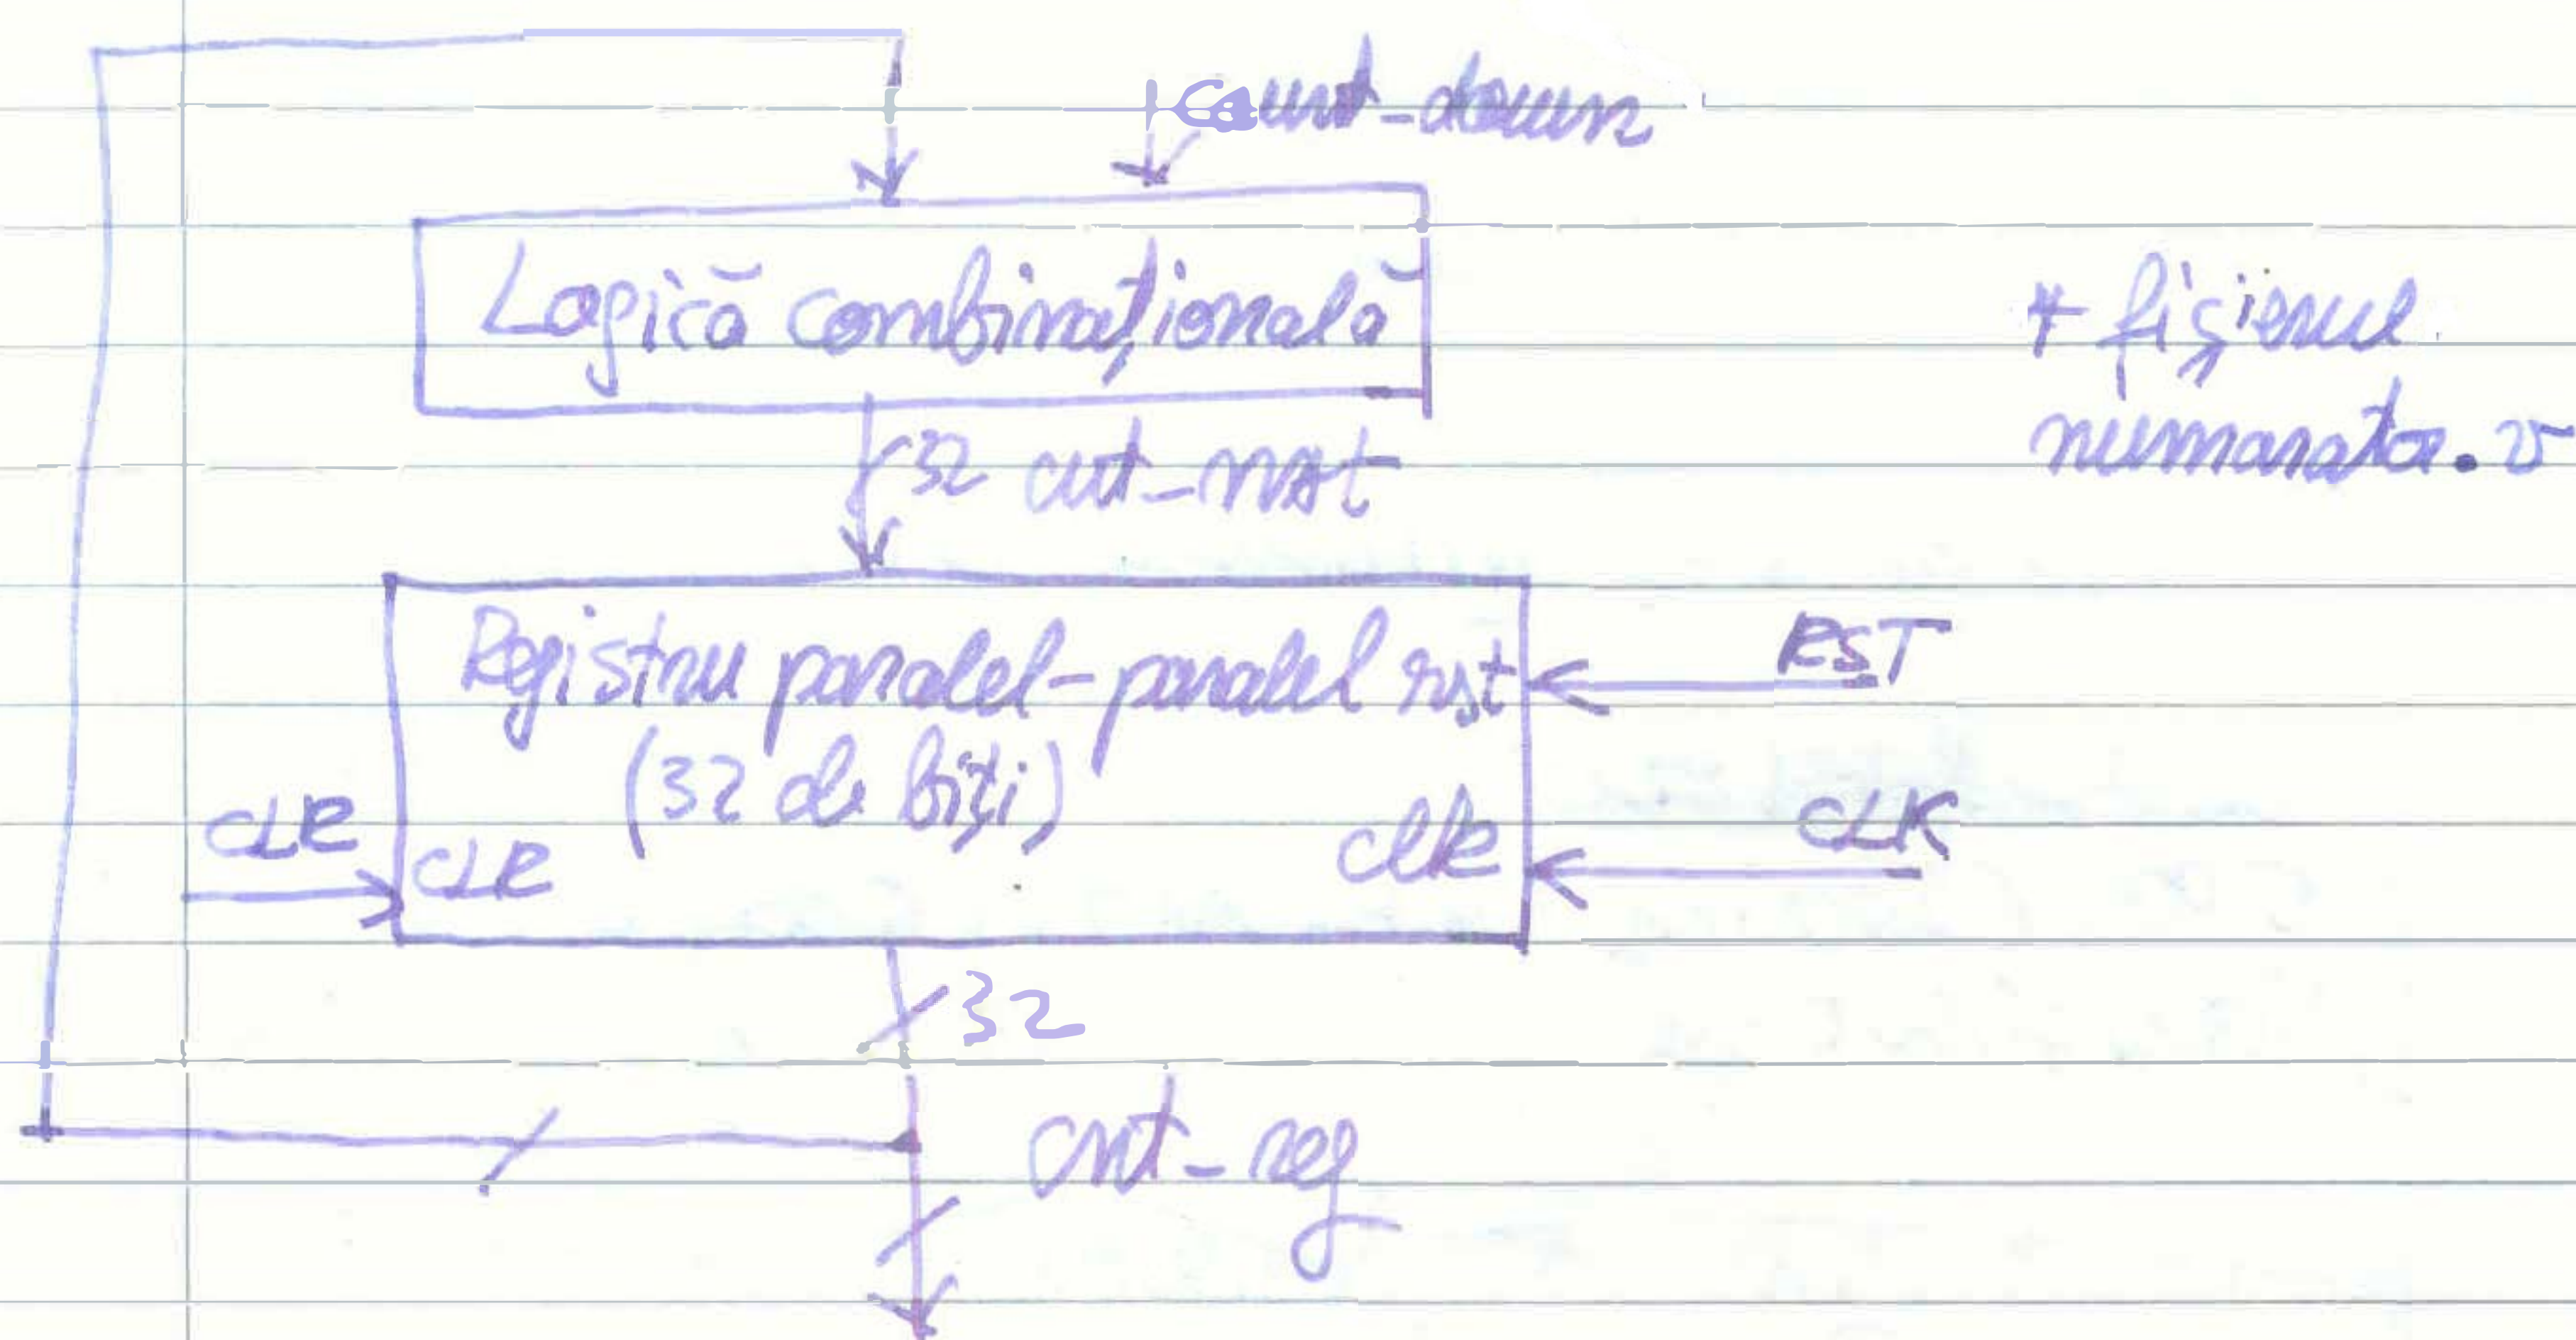 Count_down
Logică combinațională
+ fișierul
numarator.v
32 cnt_nxt
Registru paralel-paralel rst
RST
(32 de biți)
CLR
CLR
clk
CLK
32
cnt_reg